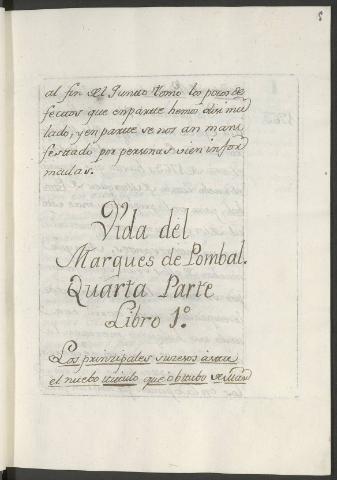 5
al fin del Quinto Tomo los pocos de
fectos que en partte hemos disimu
lado, y en partte se nos an mani
festtado por personas vien infor
madas.
Vida del
Marques de Pombal.
Quarta Parte
Libro 1º
Los prinzipales suzesos
el nuebo titulo que obtubo